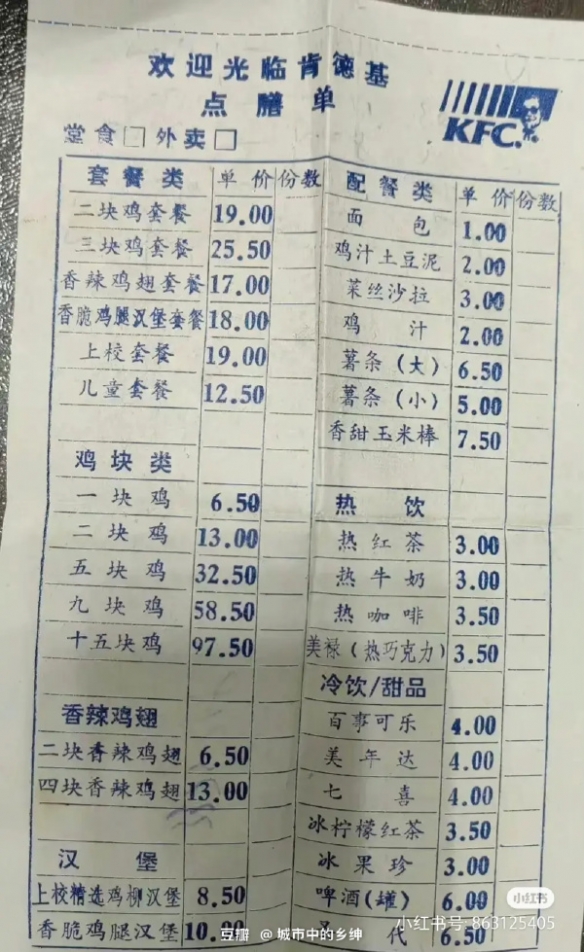 欢迎光临肯德基
点膳单
堂食□ 外卖□
KFC.
套餐类 单价 份数
二块鸡套餐 19.00
三块鸡套餐 25.50
香辣鸡翅套餐 17.00
香脆鸡腿汉堡套餐 18.00
上校套餐 19.00
儿童套餐 12.50
鸡块类
一块鸡 6.50
二块鸡 13.00
五块鸡 32.50
九块鸡 58.50
十五块鸡 97.50
香辣鸡翅
二块香辣鸡翅 6.50
四块香辣鸡翅 13.00
汉堡
上校精选鸡柳汉堡 8.50
香脆鸡腿汉堡 10.
配餐类 单价 份数
面包 1.00
鸡汁土豆泥 2.00
菜丝沙拉 3.00
鸡汁 2.00
薯条(大) 6.50
薯条(小) 5.00
香甜玉米棒 7.50
热饮
热红茶 3.00
热牛奶 3.00
热咖啡 3.50
美禄(热巧克力) 3.50
冷饮/甜品
百事可乐 4.00
美年达 4.00
七喜 4.00
冰柠檬红茶 3.50
冰果珍 3.00
啤酒(罐) 6.00
代 6.50
小红书
小红书号 863125405
豆瓣 @城市中的乡绅